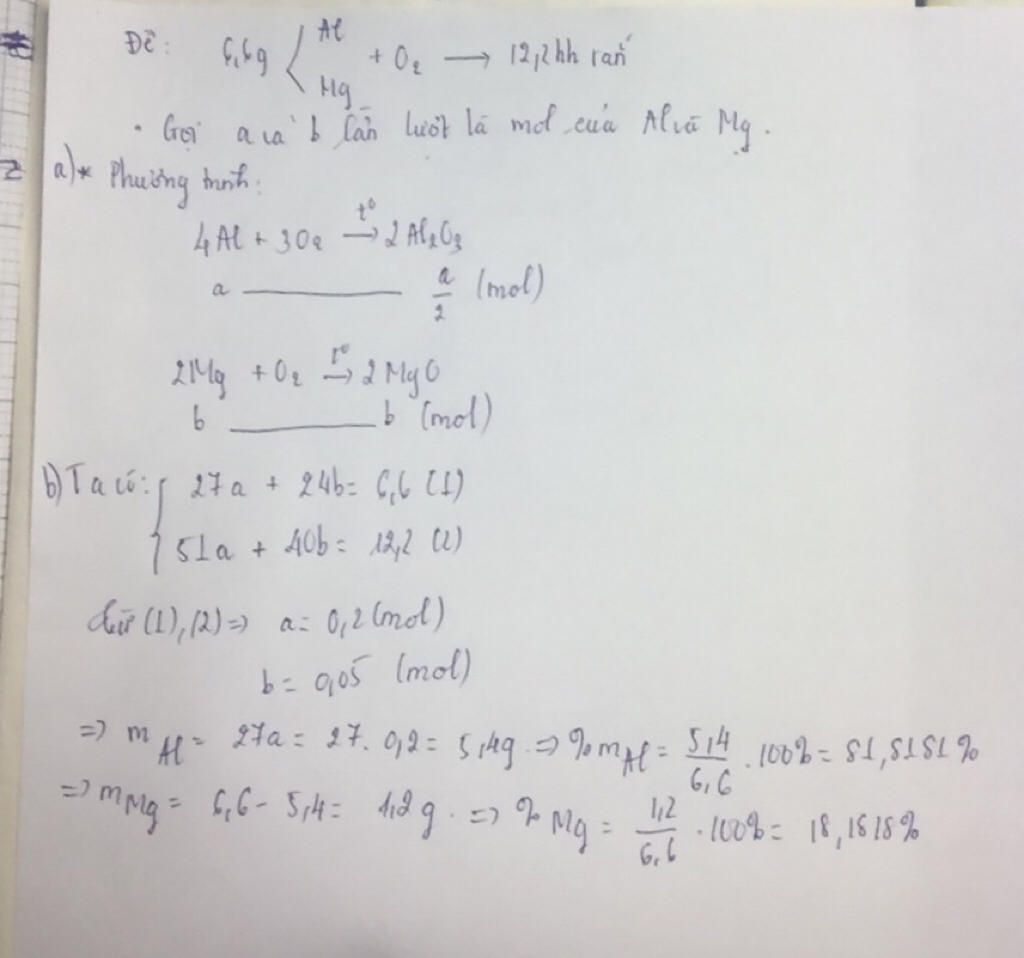 Đề: 6,6g Al Mg + O2 → 12,2 hh rắn
• Gọi a và b lần lượt là mol của Al và Mg.
a)* Phương trình:
4Al + 3O2 t° → 2Al2O3
a ——— a/2 (mol)
2Mg + O2 t° → 2MgO
b ——— b (mol)
b) Ta có: { 27a + 24b = 6,6 (1)
51a + 40b = 12,2 (2)
Từ (1), (2) => a = 0,2 (mol)
b = 0,05 (mol)
=> mAl = 27a = 27. 0,2 = 5,4g => %mAl = 5,4/6,6 . 100% = 81,8181%
=> mMg = 6,6 - 5,4 = 1,2g. => %Mg = 1,2/6,6 . 100% = 18,1818%